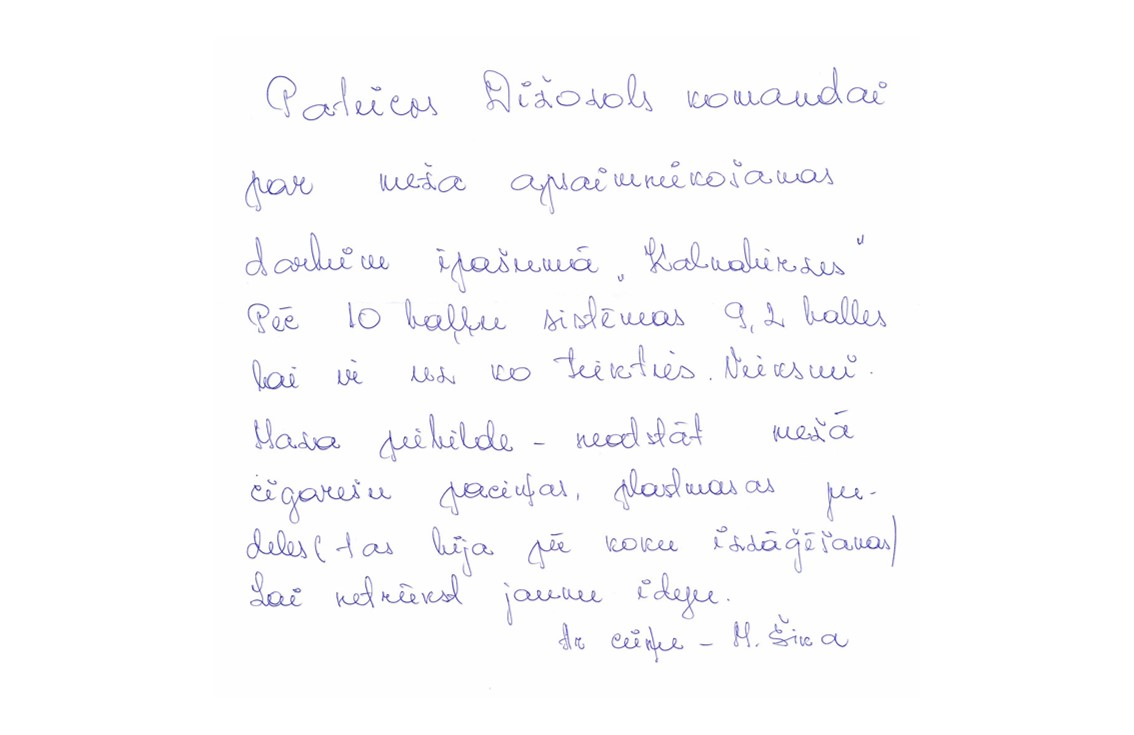 Pateicos Dižozols komandai
par meža apsaimniekošanas
darbiem īpašumā „Kalnabirzes"
Pēc 10 baļļu sistēmas 9,2 balles
lai ir uz ko tiekties. Veiksmi.
Maza piebilde - neatstāt mežā
cigarešu paciņas, plastmasas pu-
deles (tas bija pēc koku izzāģēšanas)
Lai netrūkst jaunu ideju.
Ar cieņu - M. Šica